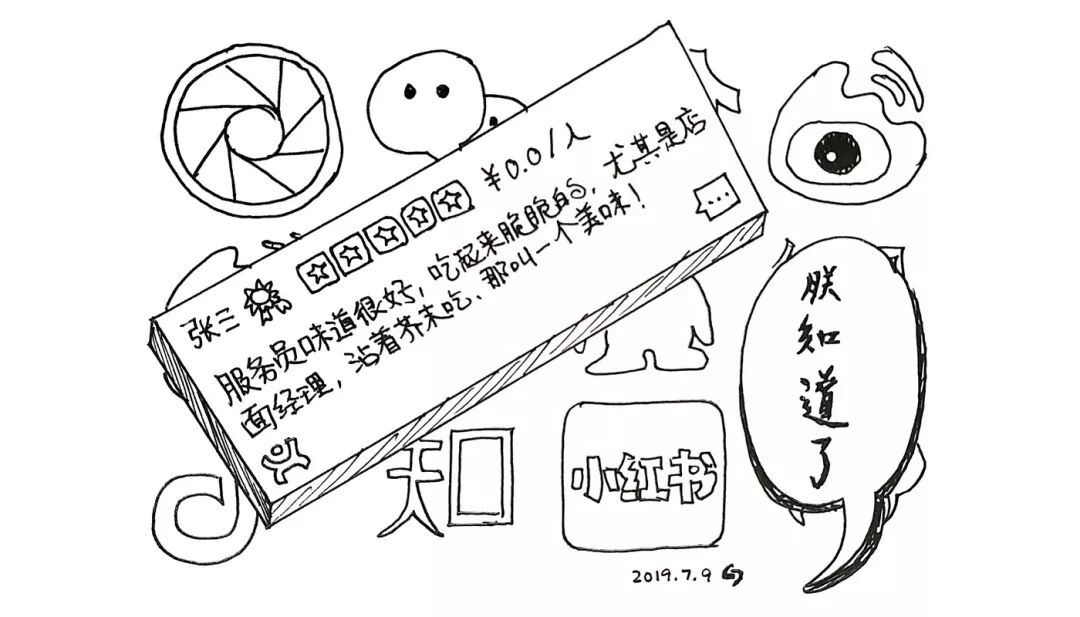 张三 ¥0.0/人
服务员味道很好，吃起来脆脆的，尤其是店
面经理，沾着芥末吃、那叫一个美味！
朕知道了
知
小红书
2019.7.9